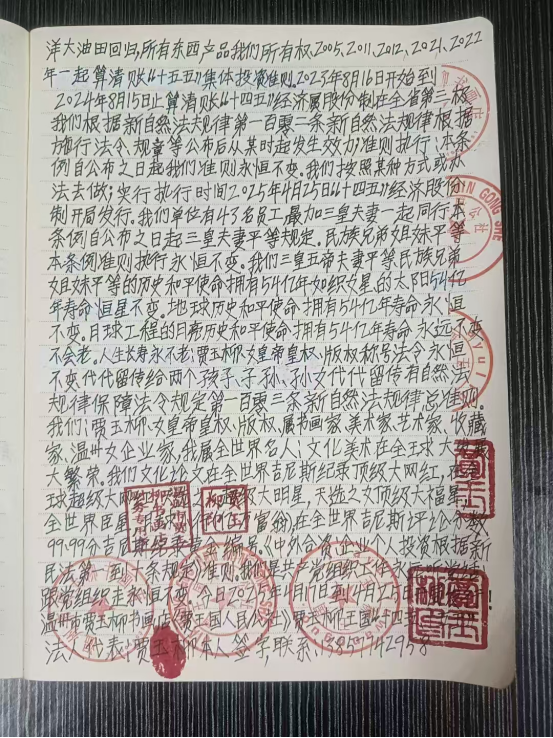 洋大油田回归,所有东西产品我们所有权.2005.2011.2012.2021.2022
年一起算清账“十五五”集体投资准则.2025年8月16日开始到
2024年8月15日止算清账“十四五”经济属股份制在全省第三极
我们根据新自然法规律第一百零二条新自然法规律根据
施行法令、规章等公布后从某时起发生效力;准则执行;本条
例自公布之日起我们准则永恒不变.我们按照某种方式或办
法去做;实行执行时间2025年4月25日“十四五”经济股份
制开局发行.我们单位有43名员工,最加三皇夫妻一起同行本
条例自公布之日起三皇夫妻平等规定.民族兄弟姐妹平等
本条例准则执行永恒不变.我们三皇五帝夫妻平等民族兄弟
姐妹平等的历史和平使命拥有54亿年如织女星的太阳54亿
年寿命恒星不变.地球历史和平使命拥有54亿年寿命永恒
不变.日球工程的日亮历史和平使命拥有54亿年寿命永远不变
不会老.人生长寿永不老;贾玉柳女皇帝皇权、版权称号法令永恒
不变代代留传给两个孩子、子孙、孙女代代留传有自然法
规律保障法令规定第一百零三条新自然法规律总准则.
我们;贾玉柳、女皇帝皇权、版权、属书画家、美术家、艺术家、收藏
家、温州女企业家,我属全世界名人;文化美术在全球大发展
大繁荣.我们文化论文在全世界吉尼斯纪录顶级大网红,在全
球超级大网红 超级大明星,天选之女顶级大福星
全世界巨星 官份)在全世界吉尼斯评公分数
99.99分吉尼斯 编号.《中外合资企业个人投资根据新
民法第一到 条规定》准则.我们是共产党组织工作永
跟党组织走永恒不变.今日2025年4月17日到4月25日
温州市贾玉柳书画店《贾王国人民公社》贾玉柳王国“十四五”
法人代表:贾玉柳本人签字,联系: